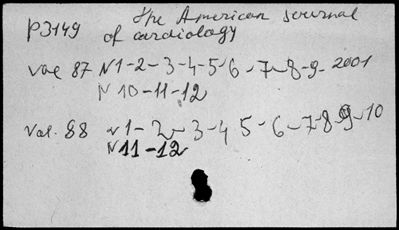 P3149 The American journal
of cardiology
Vol 87 N1-2-3-4-5-6-7-8-9- 2001
N 10-11-12
Vol. 88 N1-2-3-4 5-6-7-8-9-10
N11-12